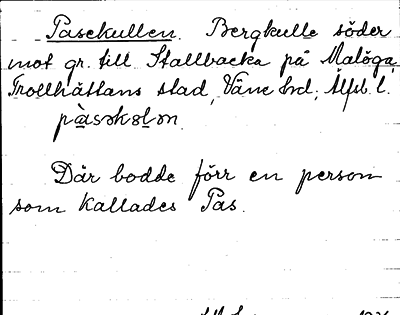 Pasekullen. Bergkulle söder
mot gr. till Stallbacka på Malöga,
Trollhättans stad, Väne hd, Älfsb. l.
pàsəkɵlən.
Där bodde förr en person
som kallades Pas.